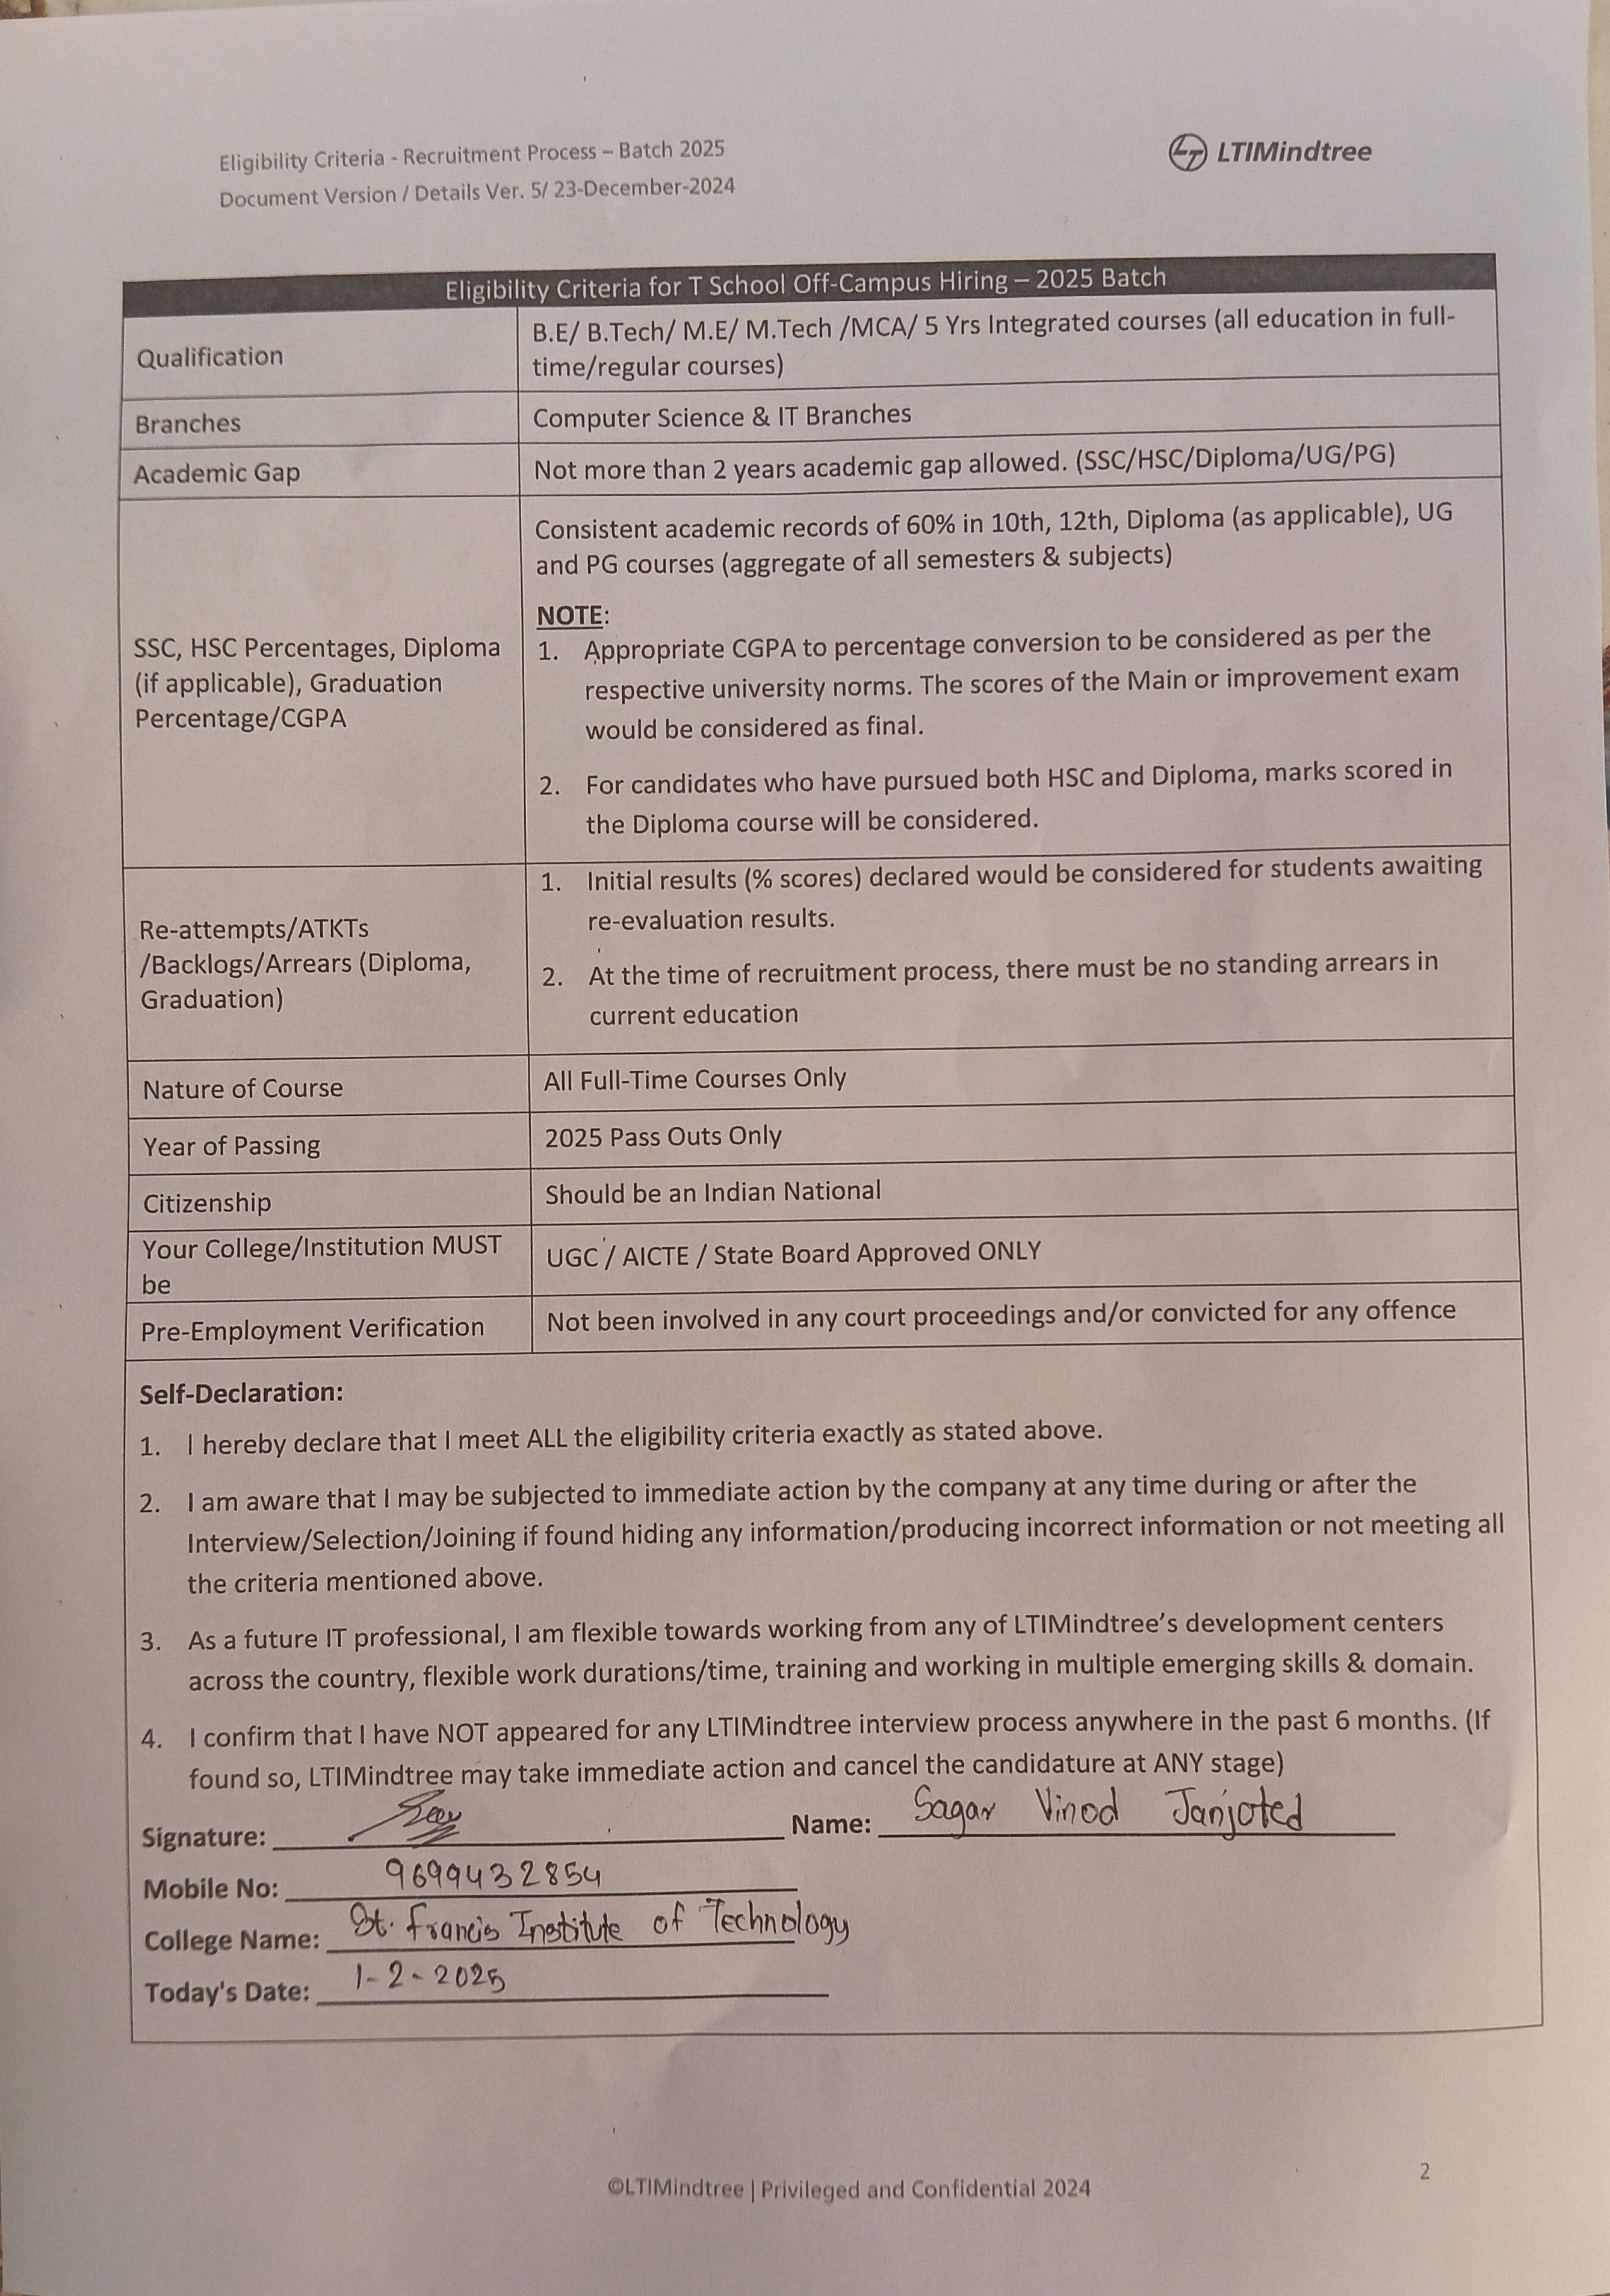 Eligibility Criteria - Recruitment Process – Batch 2025
LTIMindtree
Document Version / Details Ver. 5/ 23-December-2024
Eligibility Criteria for T School Off-Campus Hiring – 2025 Batch
Qualification
B.E/ B.Tech/ M.E/ M.Tech /MCA/ 5 Yrs Integrated courses (all education in full-
time/regular courses)
Branches
Computer Science & IT Branches
Academic Gap
Not more than 2 years academic gap allowed. (SSC/HSC/Diploma/UG/PG)
SSC, HSC Percentages, Diploma
(if applicable), Graduation
Percentage/CGPA
Consistent academic records of 60% in 10th, 12th, Diploma (as applicable), UG
and PG courses (aggregate of all semesters & subjects)
NOTE:
1. Appropriate CGPA to percentage conversion to be considered as per the
respective university norms. The scores of the Main or improvement exam
would be considered as final.
2. For candidates who have pursued both HSC and Diploma, marks scored in
the Diploma course will be considered.
Re-attempts/ATKTs
/Backlogs/Arrears (Diploma,
Graduation)
1. Initial results (% scores) declared would be considered for students awaiting
re-evaluation results.
2. At the time of recruitment process, there must be no standing arrears in
current education
Nature of Course
All Full-Time Courses Only
Year of Passing
2025 Pass Outs Only
Citizenship
Should be an Indian National
Your College/Institution MUST
be
UGC / AICTE / State Board Approved ONLY
Pre-Employment Verification
Not been involved in any court proceedings and/or convicted for any offence
Self-Declaration:
1. I hereby declare that I meet ALL the eligibility criteria exactly as stated above.
2. I am aware that I may be subjected to immediate action by the company at any time during or after the
Interview/Selection/Joining if found hiding any information/producing incorrect information or not meeting all
the criteria mentioned above.
3. As a future IT professional, I am flexible towards working from any of LTIMindtree's development centers
across the country, flexible work durations/time, training and working in multiple emerging skills & domain.
4. I confirm that I have NOT appeared for any LTIMindtree interview process anywhere in the past 6 months. (If
found so, LTIMindtree may take immediate action and cancel the candidature at ANY stage)
Signature: Name: Sagar Vinod Janjoted
Mobile No: 9699432854
College Name: St. Francis Institute of Technology
Today's Date: 1-2-2025
2
©LTIMindtree | Privileged and Confidential 2024